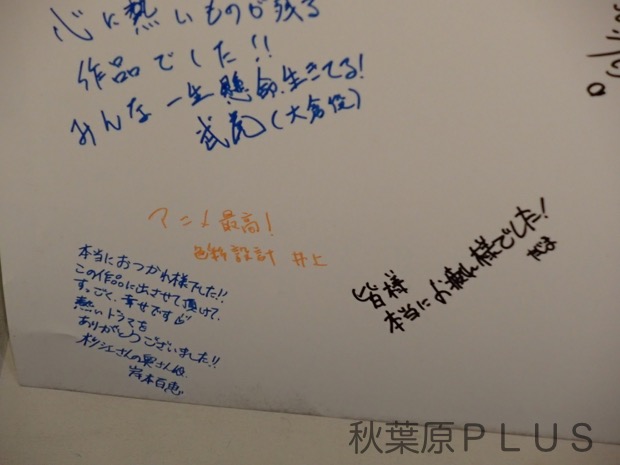 心に熱いものが残る
作品でした!!
みんな一生懸命生きてる!
武虎(大倉役)
アニメ最高!
色彩設計 井上
本当におつかれ様でした!!
この作品に出させて頂けて、
すっごく、幸せです
熱いドラマを
ありがとうございました!!
さんの奥さん役
岸本百恵
皆様
本当にお疲れ様でした!
秋葉原PLUS